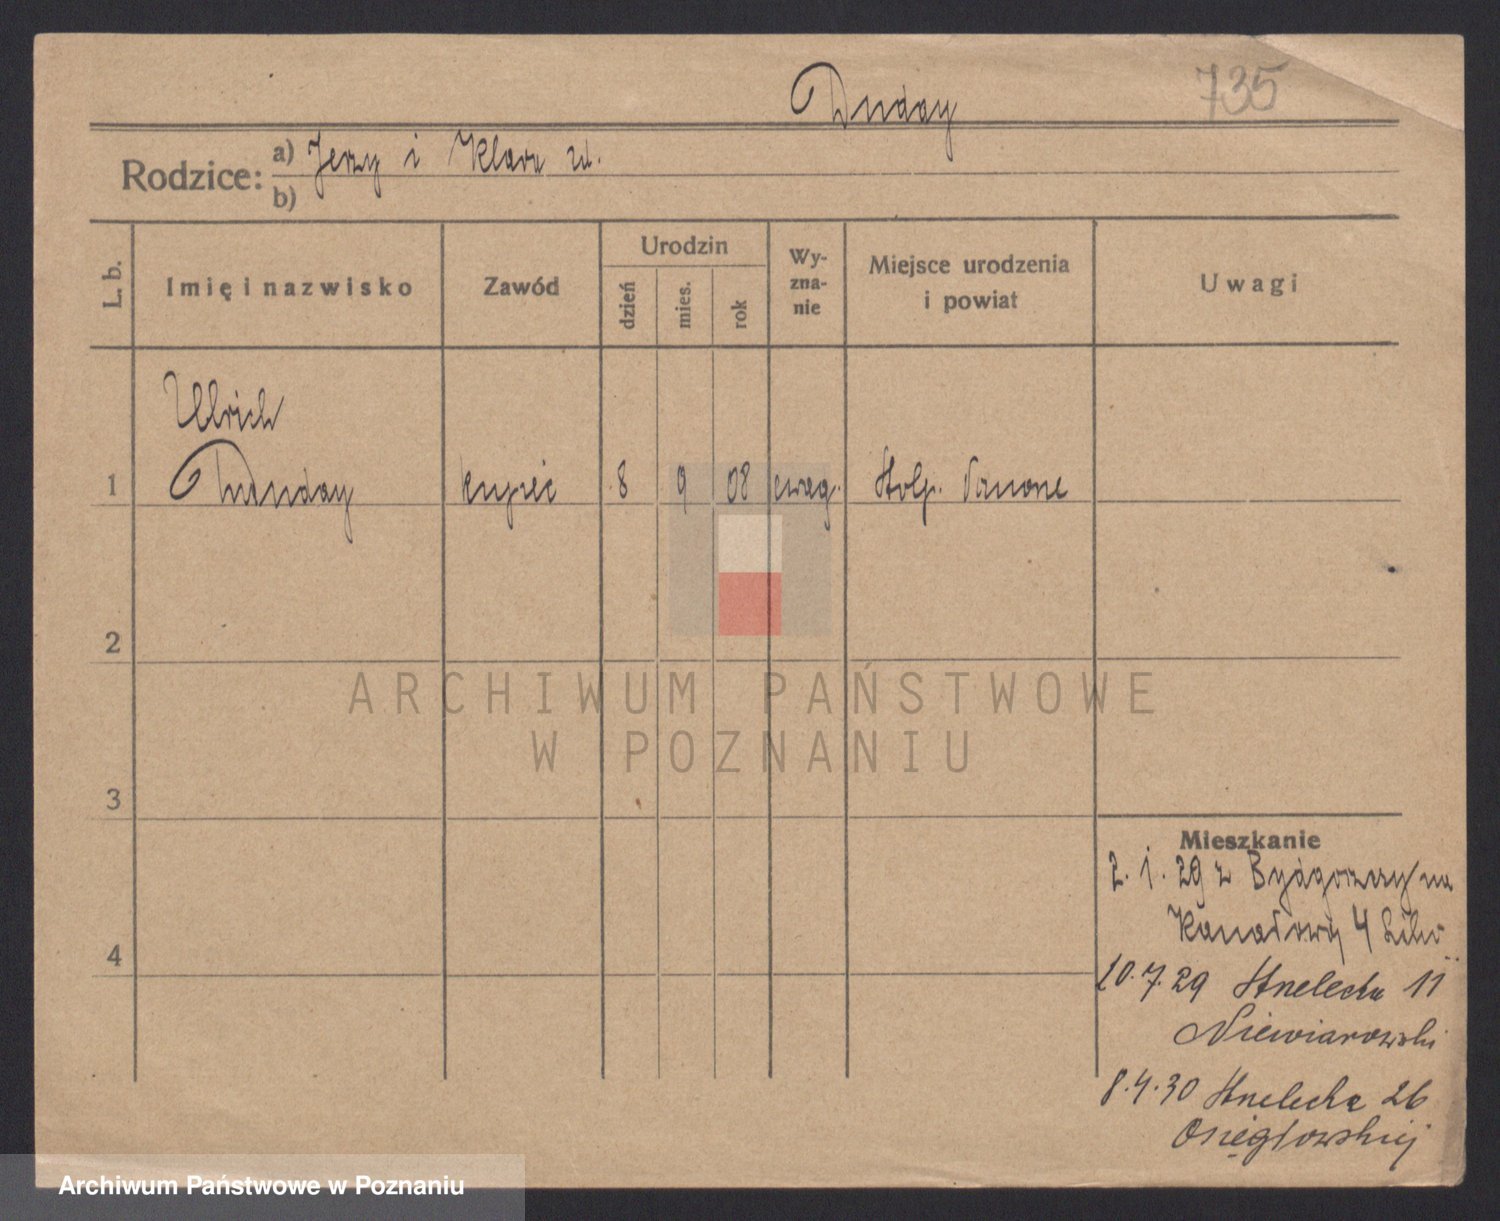 735
Rodzice:
a) Jerzy i Klara
b)
L. b.
Imię i nazwisko
Zawód
Urodzin
dzień
mies.
rok
Wy-
zna-
nie
Miejsce urodzenia
i powiat
Uwagi
Ulrich
1 kupiec 8 9 08 ewag.
2
3
4
Mieszkanie
2. 1. 29 z Bydgoszczy na
Kanałowa 4
10.7.29 Strzelecka 11
Niewiarowski
8.4.30 Strzelecka 26
ARCHIWUM PAŃSTWOWE
W POZNANIU
Archiwum Państwowe w Poznaniu